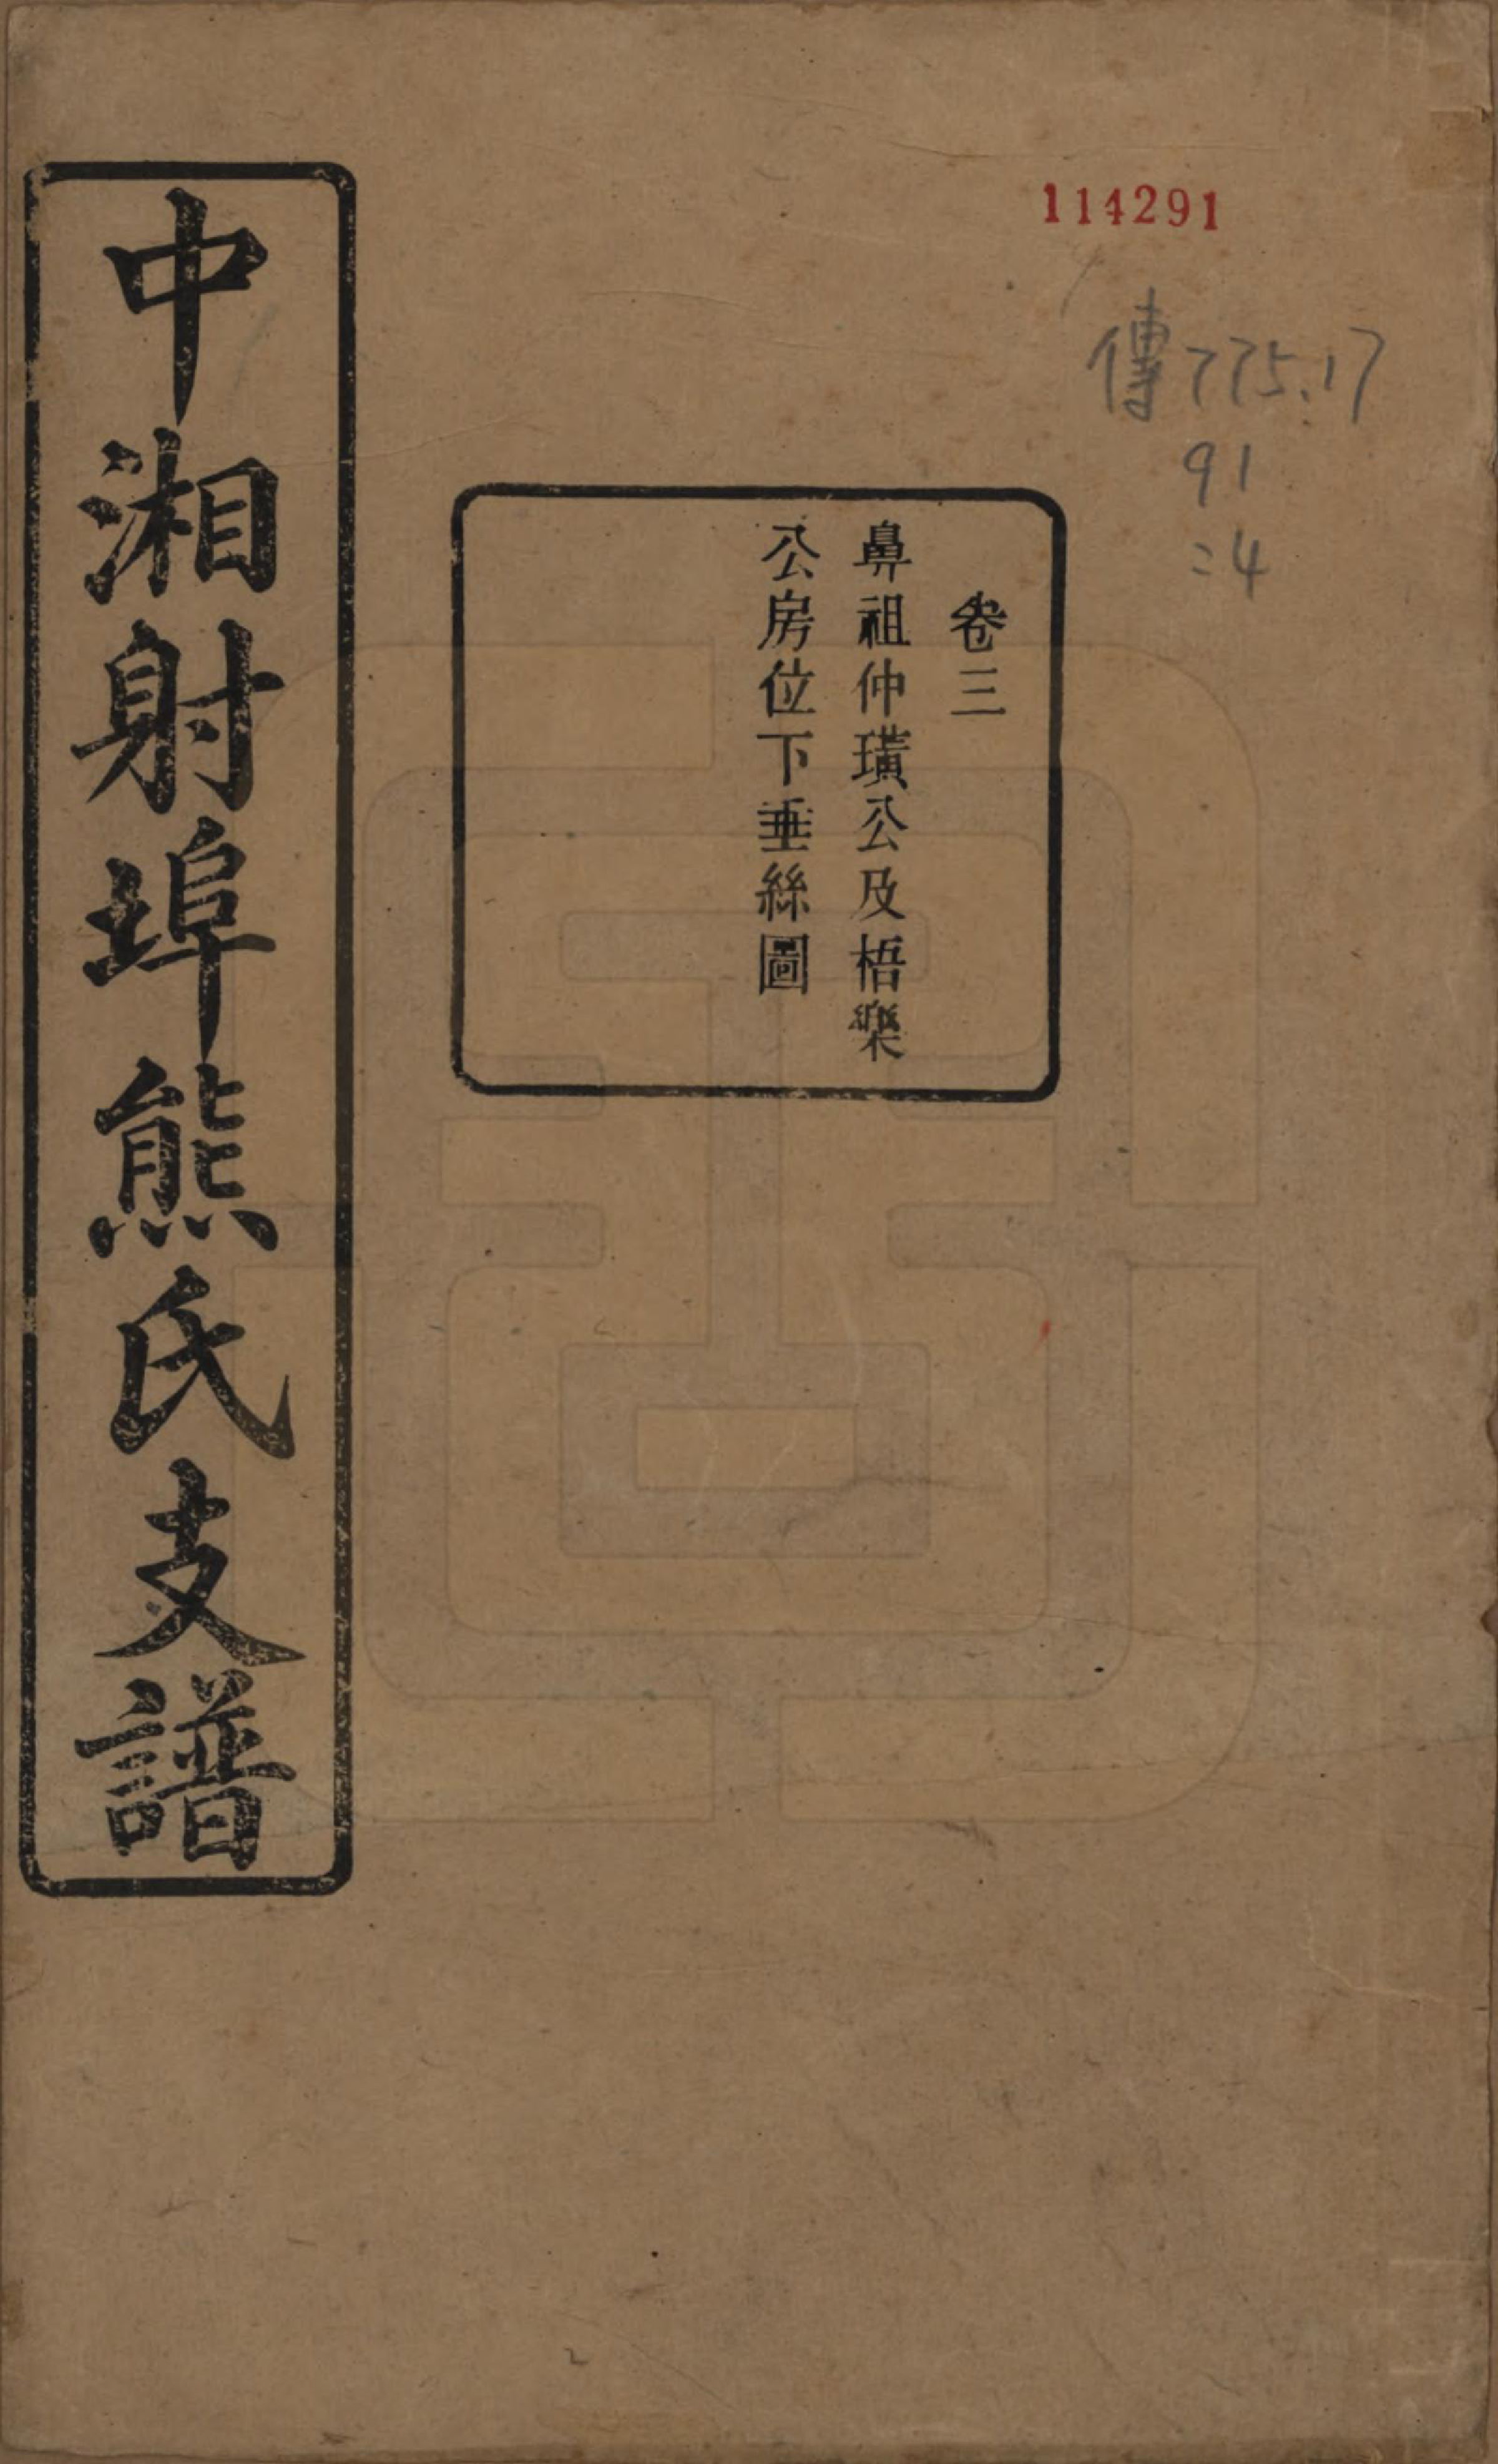 114291
傳775.17
91
:4
卷三
鼻祖仲璜公及梧樂
公房位下垂絲圖
中湘射埠熊氏支譜